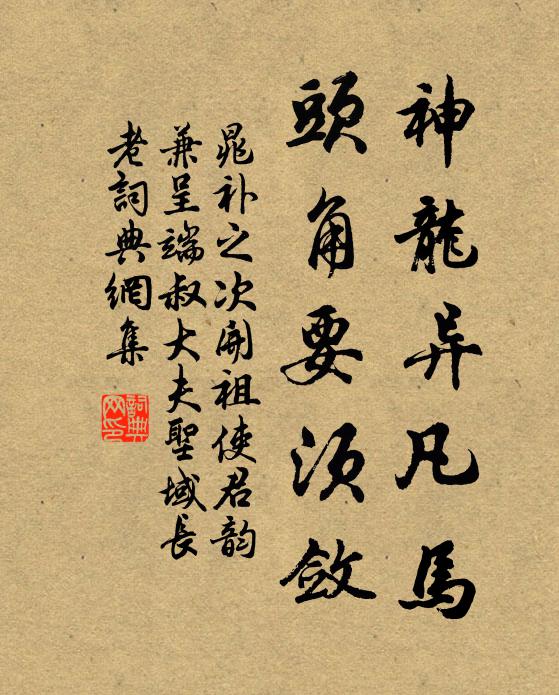 神龍异凡馬
頭角要須斂
晁补之次開祖使君韵
兼呈端叔大夫聖域長
老詞典網集
詞典
网印